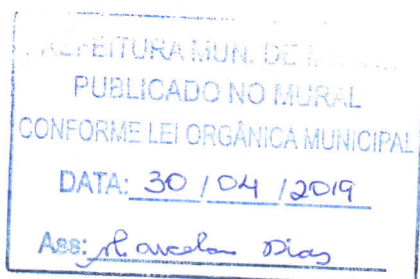 PREFEITURA MUN. DE
PUBLICADO NO MURAL
CONFORME LEI ORGÂNICA MUNICIPAL
DATA: 30 / 04 / 2019
Ass: Marcelo Dias